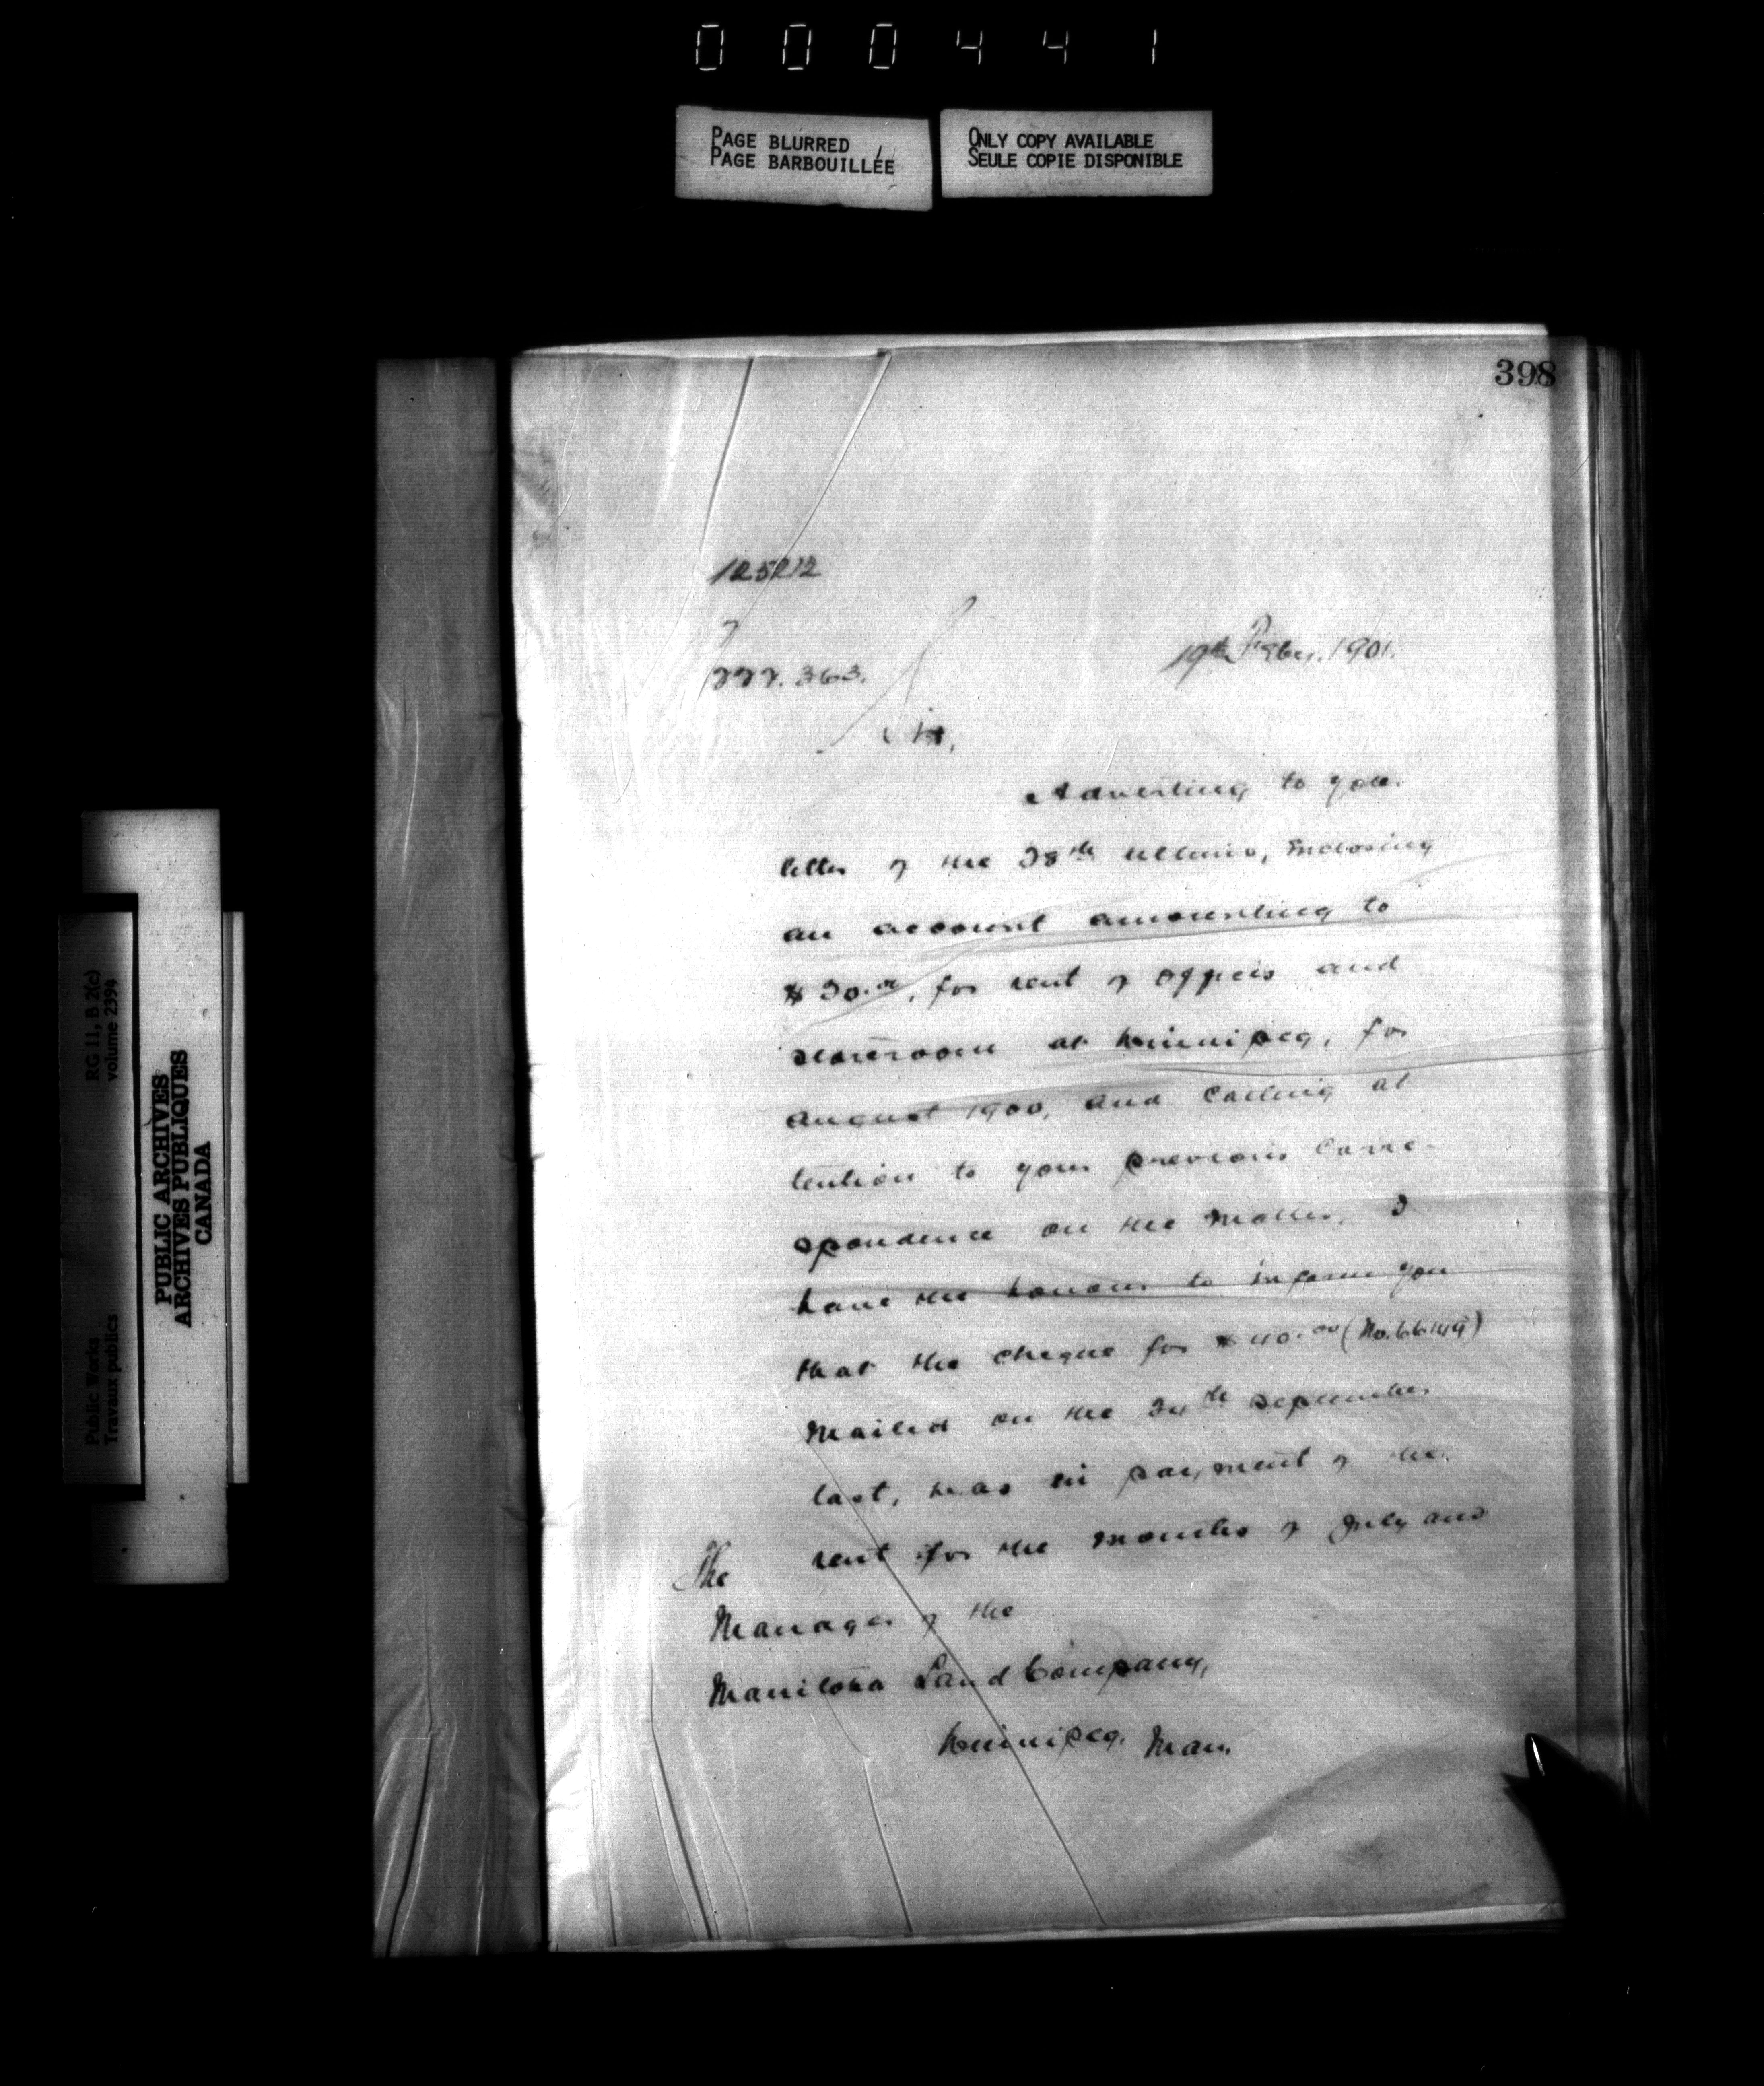 000441
PAGE BLURRED
PAGE BARBOUILLÉE
ONLY COPY AVAILABLE
SEULE COPIE DISPONIBLE
398
125212
363.
19th Feby. 1901.
Sir,
Adverting to your
letter of the 28th ultimo, enclosing
an account amounting to
$20.00, for rent of offices and
storeroom at Winnipeg, for
August 1900, and calling at
tention to your previous corre-
spondence on the matter, I
have the honour to inform you
that the cheque for $40.00 (No. 66149)
mailed on the 24th September
last, was in payment of the
rent for the months of July and
The
Manager of the
Manitoba Land Company,
Winnipeg, Man.
RG 11, B 2(c)
volume 2394
Public Works
Travaux publics
PUBLIC ARCHIVES
ARCHIVES PUBLIQUES
CANADA